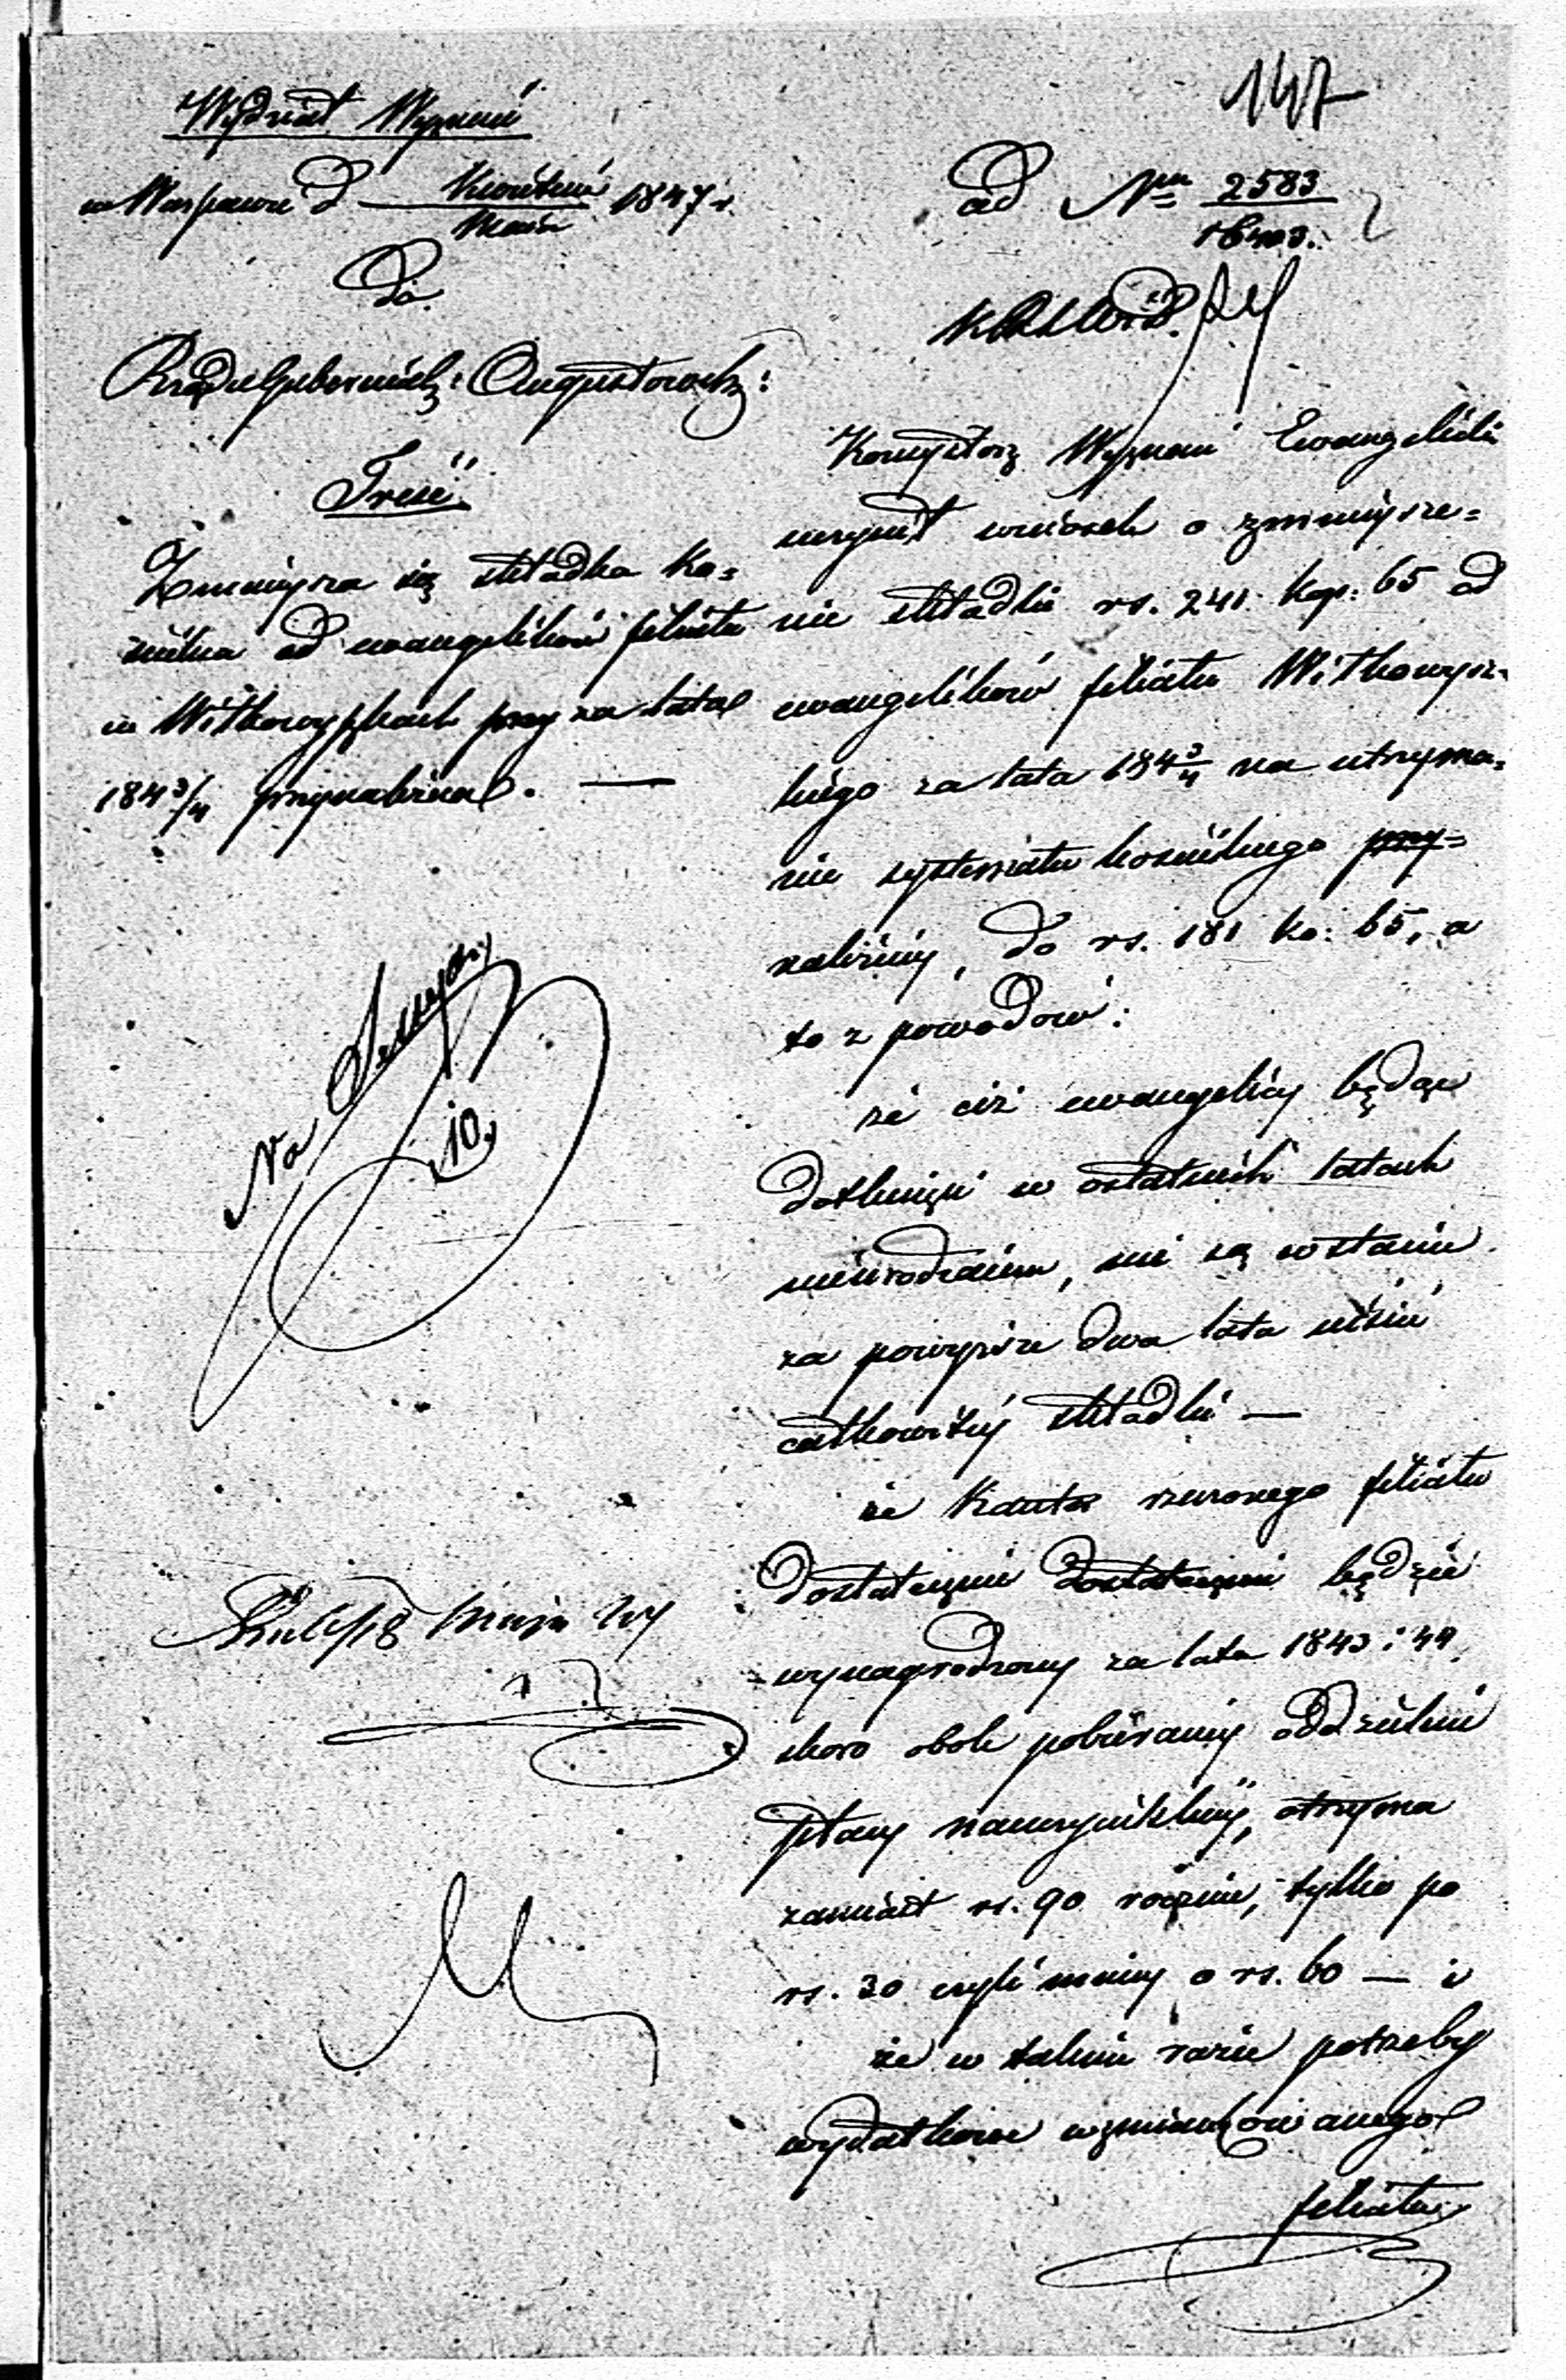 147
Wydział Wyznań
w Warszawie d — Kwietnia / Maia 1847 r.
Do
Rządu Gubernialz: Augustowsk:
Treść.
Zmniejsza się składka Ko=
ścielna od ewangelików filiału
w Witkowyszkach za lata
184 3/4 przynależna. —
Na
10.
18 Maja
ad Nru 2583 /
Konsystorz Wyznań Ewangelickich
uczynił wniosek o zmniejsze=
nie składki rs. 241 kop: 65 od
ewangelików filiału Witkowysz=
kiego za lata 184 3/4 na utrzyma=
nie systematu kościelnego przy=
należnej, do rs. 181 ko: 65, a
to z powodów:
że ciż ewangelicy będąc
dotknięci w ostatnich latach
nieurodzaiem, nie są w stanie
za powyższe dwa lata uiścić
całkowitej składki —
że Kantor rzeczonego filiału
dostatecznie dostatecznie będzie
wynagrodzony za lata 1843 i 44,
skoro obok pobieraney oddzielnie
płacy nauczycielskiej, otrzyma
zamiast rs. 90 rocznie, tylko po
rs. 30 czyli mniej o rs. 60 — i
że w takim razie potrzeby
wydatkowe wzmiankowanego
filiału